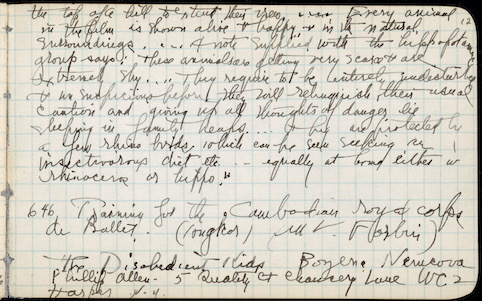 the top of a hill to extend their view .... Every animal
in the film is shown alive & happy & in its natural 12
surroundings. ... A note supplied with the hippopotamus
group says: "These animals are getting very scarce & are
extremely shy.... They require to be entirely undisturbed
& unsuspicious before they will relinquish their usual
caution and giving up all thoughts of danger lie
sleeping in family heaps.... They are protected by
a few rhino birds, which can be seen seeking an
insectivorous diet etc ... equally at home either on
rhinoceros or hippo."
646. Training for the Cambodian royal corps
de Ballet. (Angkor)
The Disobedient Kids Bozena Nemcova
Phillip Allan 5 Quality Ct Chancery Lane WC2
Harper N.Y.